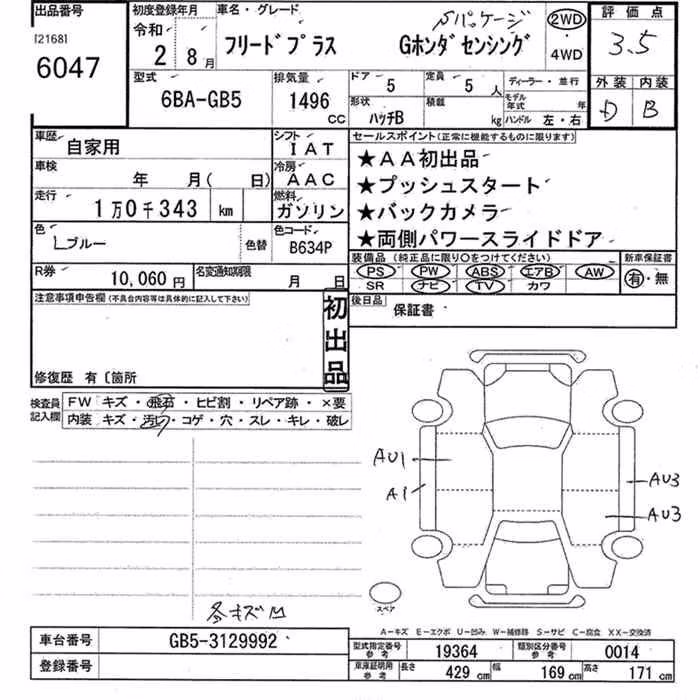 出品番号
[2168]
6047
初度登録年月
令和
2 8月
車名・グレード
Sパッケージ
フリードプラス Gホンダセンシング
2WD
4WD
評価点
3.5
外装 内装
D B
型式
6BA-GB5
排気量
1496
CC
ドア
5
定員
5人
形状
ハッチB
積載
kg
ディーラー・並行
モデル年式 年
ハンドル 左・右
車歴
自家用
シフト
IAT
車検
年 月( 日)
冷房
AAC
走行
1万0千343 km
燃料
ガソリン
色
Lブルー
色替
色コード
B634P
R券
10,060円
名変通知期限
月 日
セールスポイント(正常に機能するものに限ります)
★AA初出品
★プッシュスタート
★バックカメラ
★両側パワースライドドア
装備品(純正品に限り○をつけてください)
PS PW ABS エアB AW
SR ナビ TV カワ
新車保証書
有・無
後日品
保証書
注意事項申告欄(不具合内容等は具体的に記入して下さい)
初出品
修復歴 有〔箇所
検査員記入欄
FW キズ・飛石・ヒビ割・リペア跡・×要
内装 キズ・汚れ・コゲ・穴・スレ・キレ・破レ
AU1
A1
AU3
AU3
スペア
各キズ凹
A-キズ E-エクボ U-凹み W-補修跡 S-サビ C-腐食 XX-交換済
車台番号
GB5-3129992
登録番号
型式指定番号参考
19364
類別区分番号参考
0014
車庫証明用参考
長さ 429 cm 幅 169 cm 高さ 171 cm